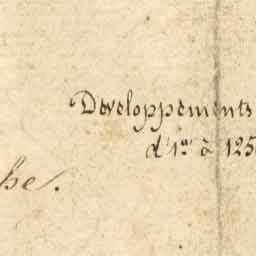 Developpements
d'1er à 125
he.